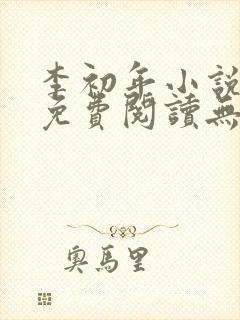 李初年小說
免費閱讀無
奧馬里